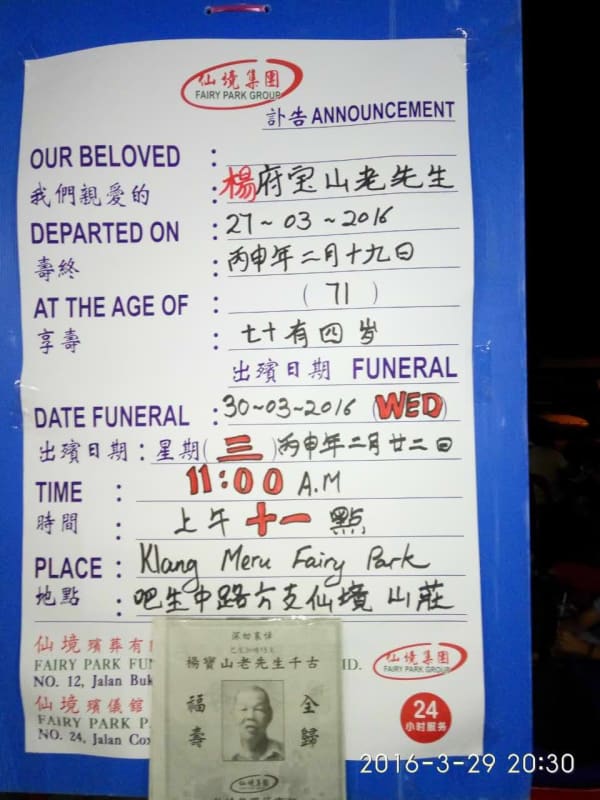 仙境集團
FAIRY PARK GROUP
訃告 ANNOUNCEMENT
OUR BELOVED :
我們親愛的 : 楊府宝山老先生
DEPARTED ON : 27~03~2016
壽終 : 丙申年二月十九日
AT THE AGE OF : ( 71 )
享壽 : 七十有四岁
出殯日期 FUNERAL
DATE FUNERAL : 30~03~2016 (WED)
出殯日期 : 星期( 三 )丙申年二月廿二日
TIME : 11:00 A.M
時間 : 上午 十一 點
PLACE : Klang Meru Fairy Park
地點 : 吧生中路六支仙境 山莊
仙境殯葬有
FAIRY PARK FUN
NO. 12, Jalan Buk
仙境殯儀館
FAIRY PARK P
NO. 24, Jalan Cox
仙境集團
FAIRY PARK GROUP
24
小时服务
深切哀悼
楊寶山老先生千古
福壽
全歸
仙境集團
2016-3-29 20:30